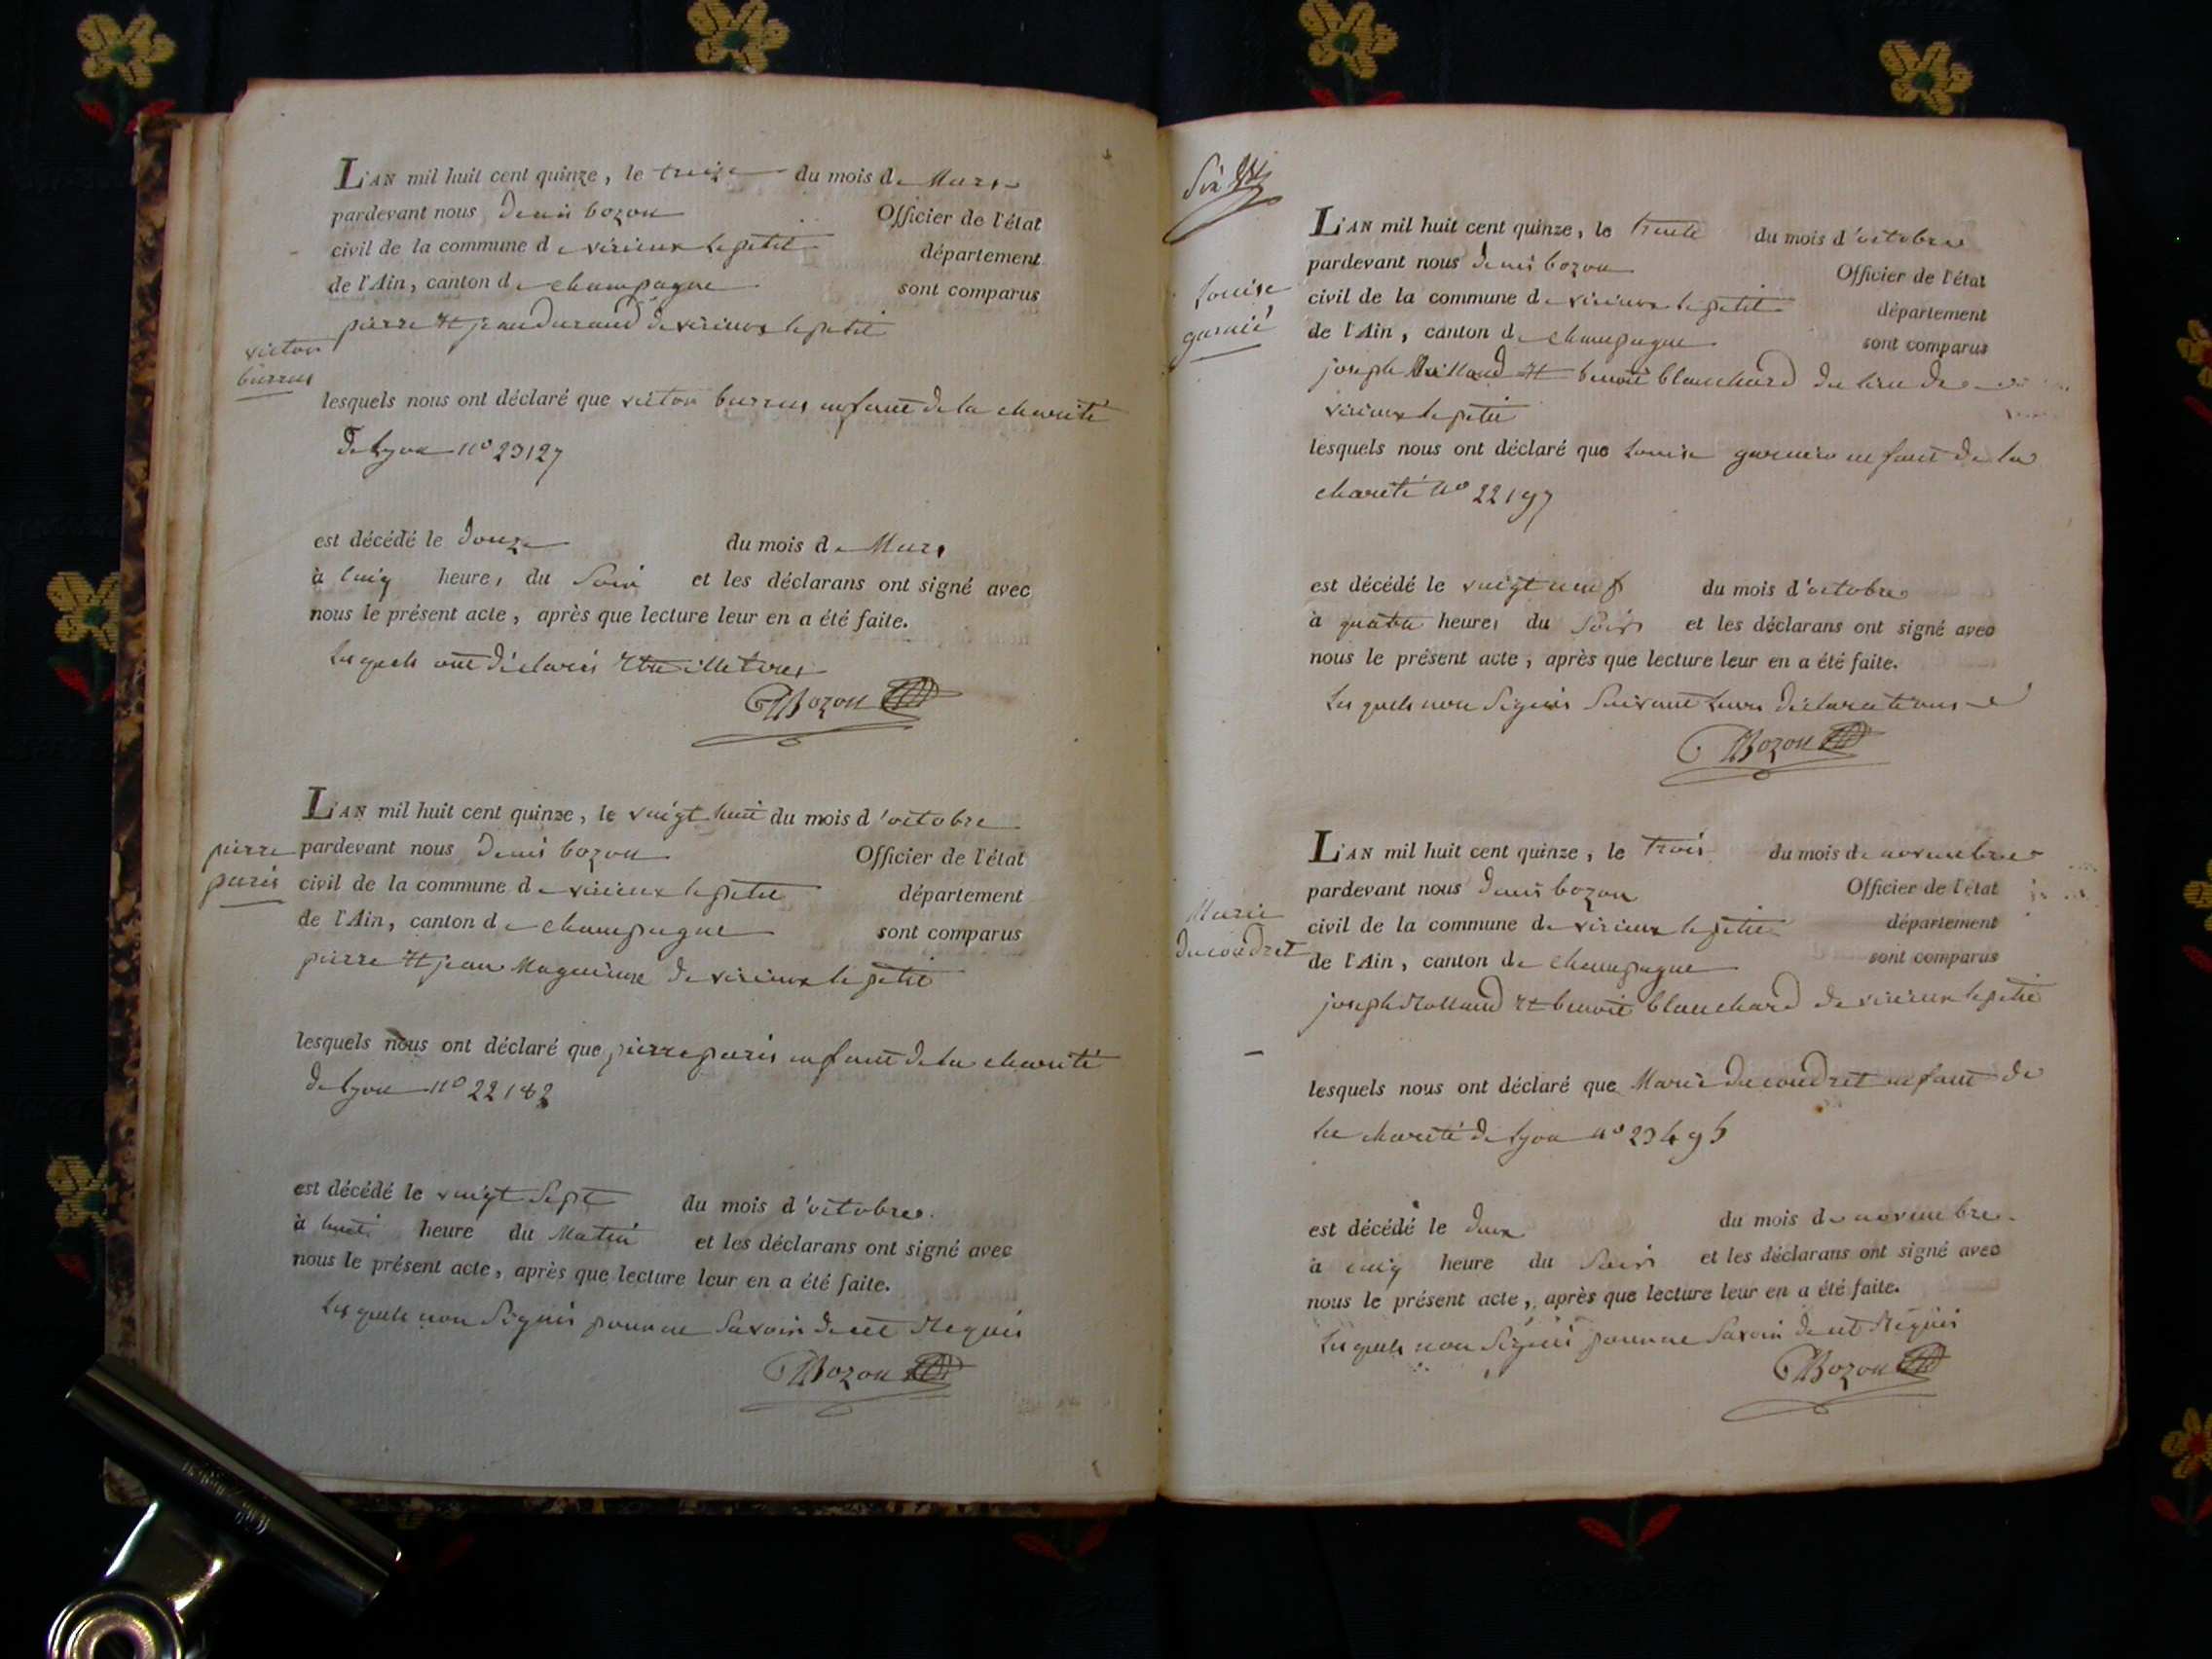 L'AN mil huit cent quinze, le treize du mois de Mars
pardevant nous denis bozon Officier de l'état
civil de la commune de virieux le petit département
de l'Ain, canton de champagne sont comparus
pierre et jean durand de virieux le petit
victor
burrus
lesquels nous ont déclaré que victor burrus enfant de la charité
de Lyon nº 23127
est décédé le douze du mois de Mars
à cinq heures du soir et les déclarans ont signé avec
nous le présent acte, après que lecture leur en a été faite.
Lesquels ont déclarés etre illetires
Bozon
L'AN mil huit cent quinze, le vingt huit du mois d'octobre
pierre
paris
pardevant nous denis bozon Officier de l'état
civil de la commune de virieux le petit département
de l'Ain, canton de champagne sont comparus
pierre et jean de virieux le petit
lesquels nous ont déclaré que pierre paris enfant de la charité
de Lyon nº 22182
est décédé le vingt sept du mois d'octobre
à huit heure du Matin et les déclarans ont signé avec
nous le présent acte, après que lecture leur en a été faite.
Lesquels non signés pour ne savoir de ce Requis
Bozon
Six
L'AN mil huit cent quinze, le trente du mois d'octobre
pardevant nous denis bozon Officier de l'état
Louise
garnié
civil de la commune de virieux le petit département
de l'Ain, canton de champagne sont comparus
joseph et benoit blanchard du lieu de
virieux le petit
lesquels nous ont déclaré que Louise garnier enfant de la
charité nº 22197
est décédé le vingt neuf du mois d'octobre
à quatre heures du soir et les déclarans ont signé avec
nous le présent acte, après que lecture leur en a été faite.
Lesquels non signés suivant leurs déclarations
Bozon
L'AN mil huit cent quinze, le trois du mois de novembre
pardevant nous denis bozon Officier de l'état
Marie
ducoudret
civil de la commune de virieux le petit département
de l'Ain, canton de champagne sont comparus
joseph Rolland et benoit blanchard de virieux le petit
lesquels nous ont déclaré que Marie ducoudret enfant de
la charité de Lyon nº
est décédé le deux du mois de novembre
à cinq heure du soir et les déclarans ont signé avec
nous le présent acte, après que lecture leur en a été faite.
Lesquels non signés pour ne savoir de ce Requis
Bozon